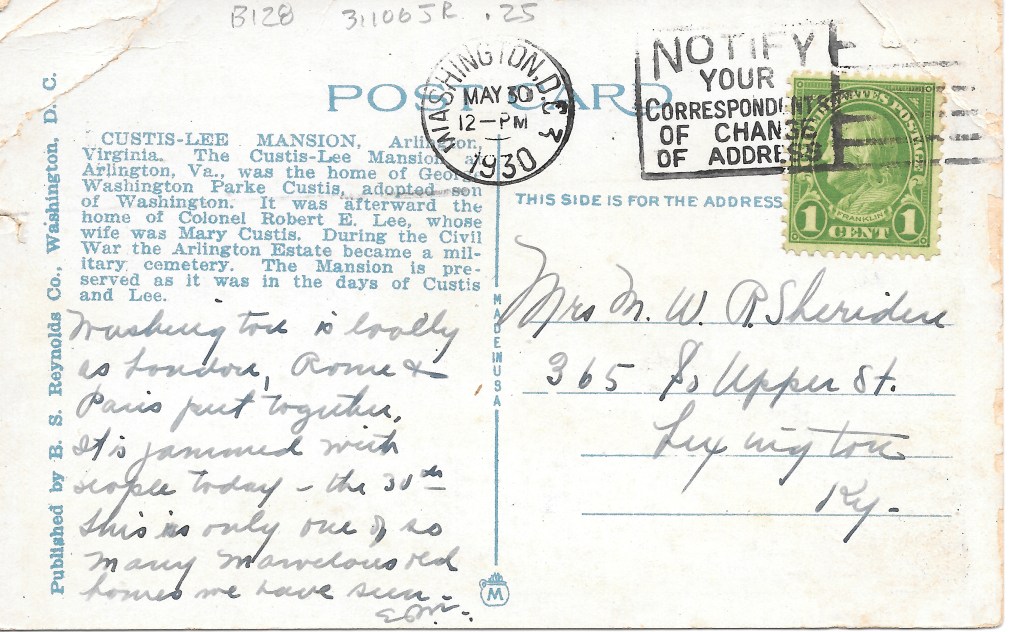 B128 311065R .25
POST CARD
WASHINGTON, D.C.
MAY 30
12-PM
1930
NOTIFY
YOUR
CORRESPONDENTS
OF CHANGE
OF ADDRESS
UNITED STATES POSTAGE
FRANKLIN
1 CENT 1
CUSTIS-LEE MANSION, Arlington,
Virginia. The Custis-Lee Mansion at
Arlington, Va., was the home of George
Washington Parke Custis, adopted son
of Washington. It was afterward the
home of Colonel Robert E. Lee, whose
wife was Mary Custis. During the Civil
War the Arlington Estate became a mil-
itary cemetery. The Mansion is pre-
served as it was in the days of Custis
and Lee.
THIS SIDE IS FOR THE ADDRESS
Published by B. S. Reynolds Co., Washington, D. C.
MADE IN USA
M
Washington is
as London, Rome &
Paris put together.
It is jammed with
people today - the 30th
This is only one of so
many marvelous old
homes we have seen -
Mrs M. W. R. Sheridan
365 So Upper St.
Lexington
Ky-